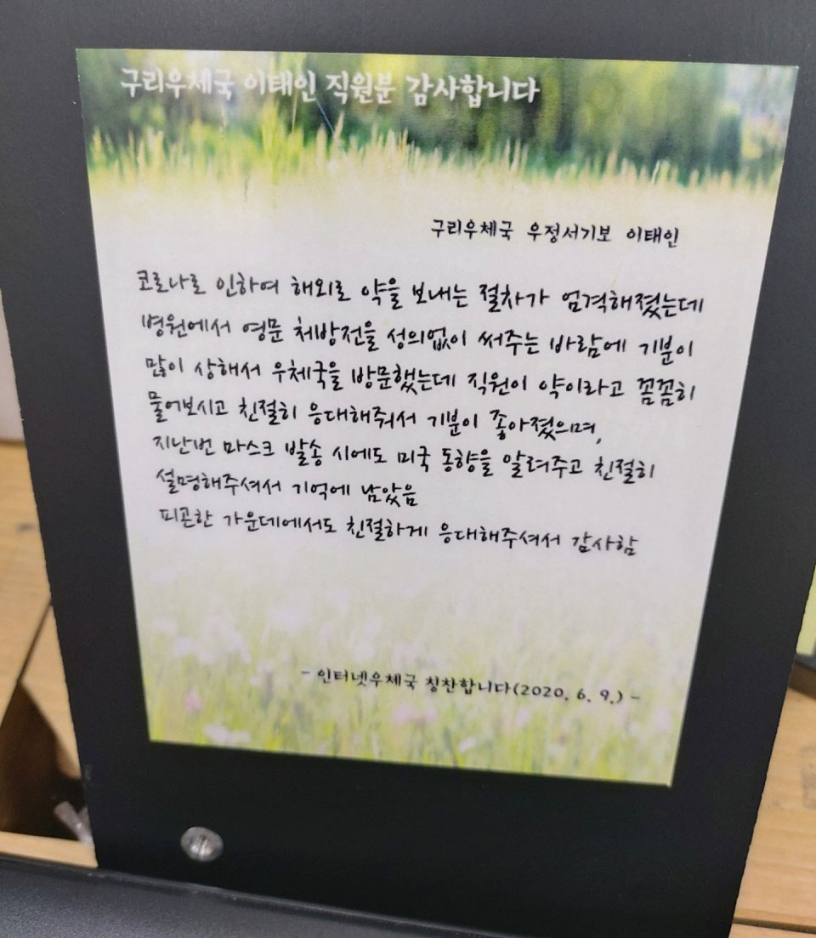 구리우체국 이태인 직원분 감사합니다
구리우체국 우정서기보 이태인
코로나로 인하여 해외로 약을 보내는 절차가 엄격해졌는데
병원에서 영문 처방전을 성의없이 써주는 바람에 기분이
많이 상해서 우체국을 방문했는데 직원이 약이라고 꼼꼼히
물어보시고 친절히 응대해줘서 기분이 좋아졌으며,
지난번 마스크 발송 시에도 미국 동향을 알려주고 친절히
설명해주셔서 기억에 남았음
피곤한 가운데에서도 친절하게 응대해주셔서 감사함
- 인터넷우체국 칭찬합니다(2020. 6. 9.) -